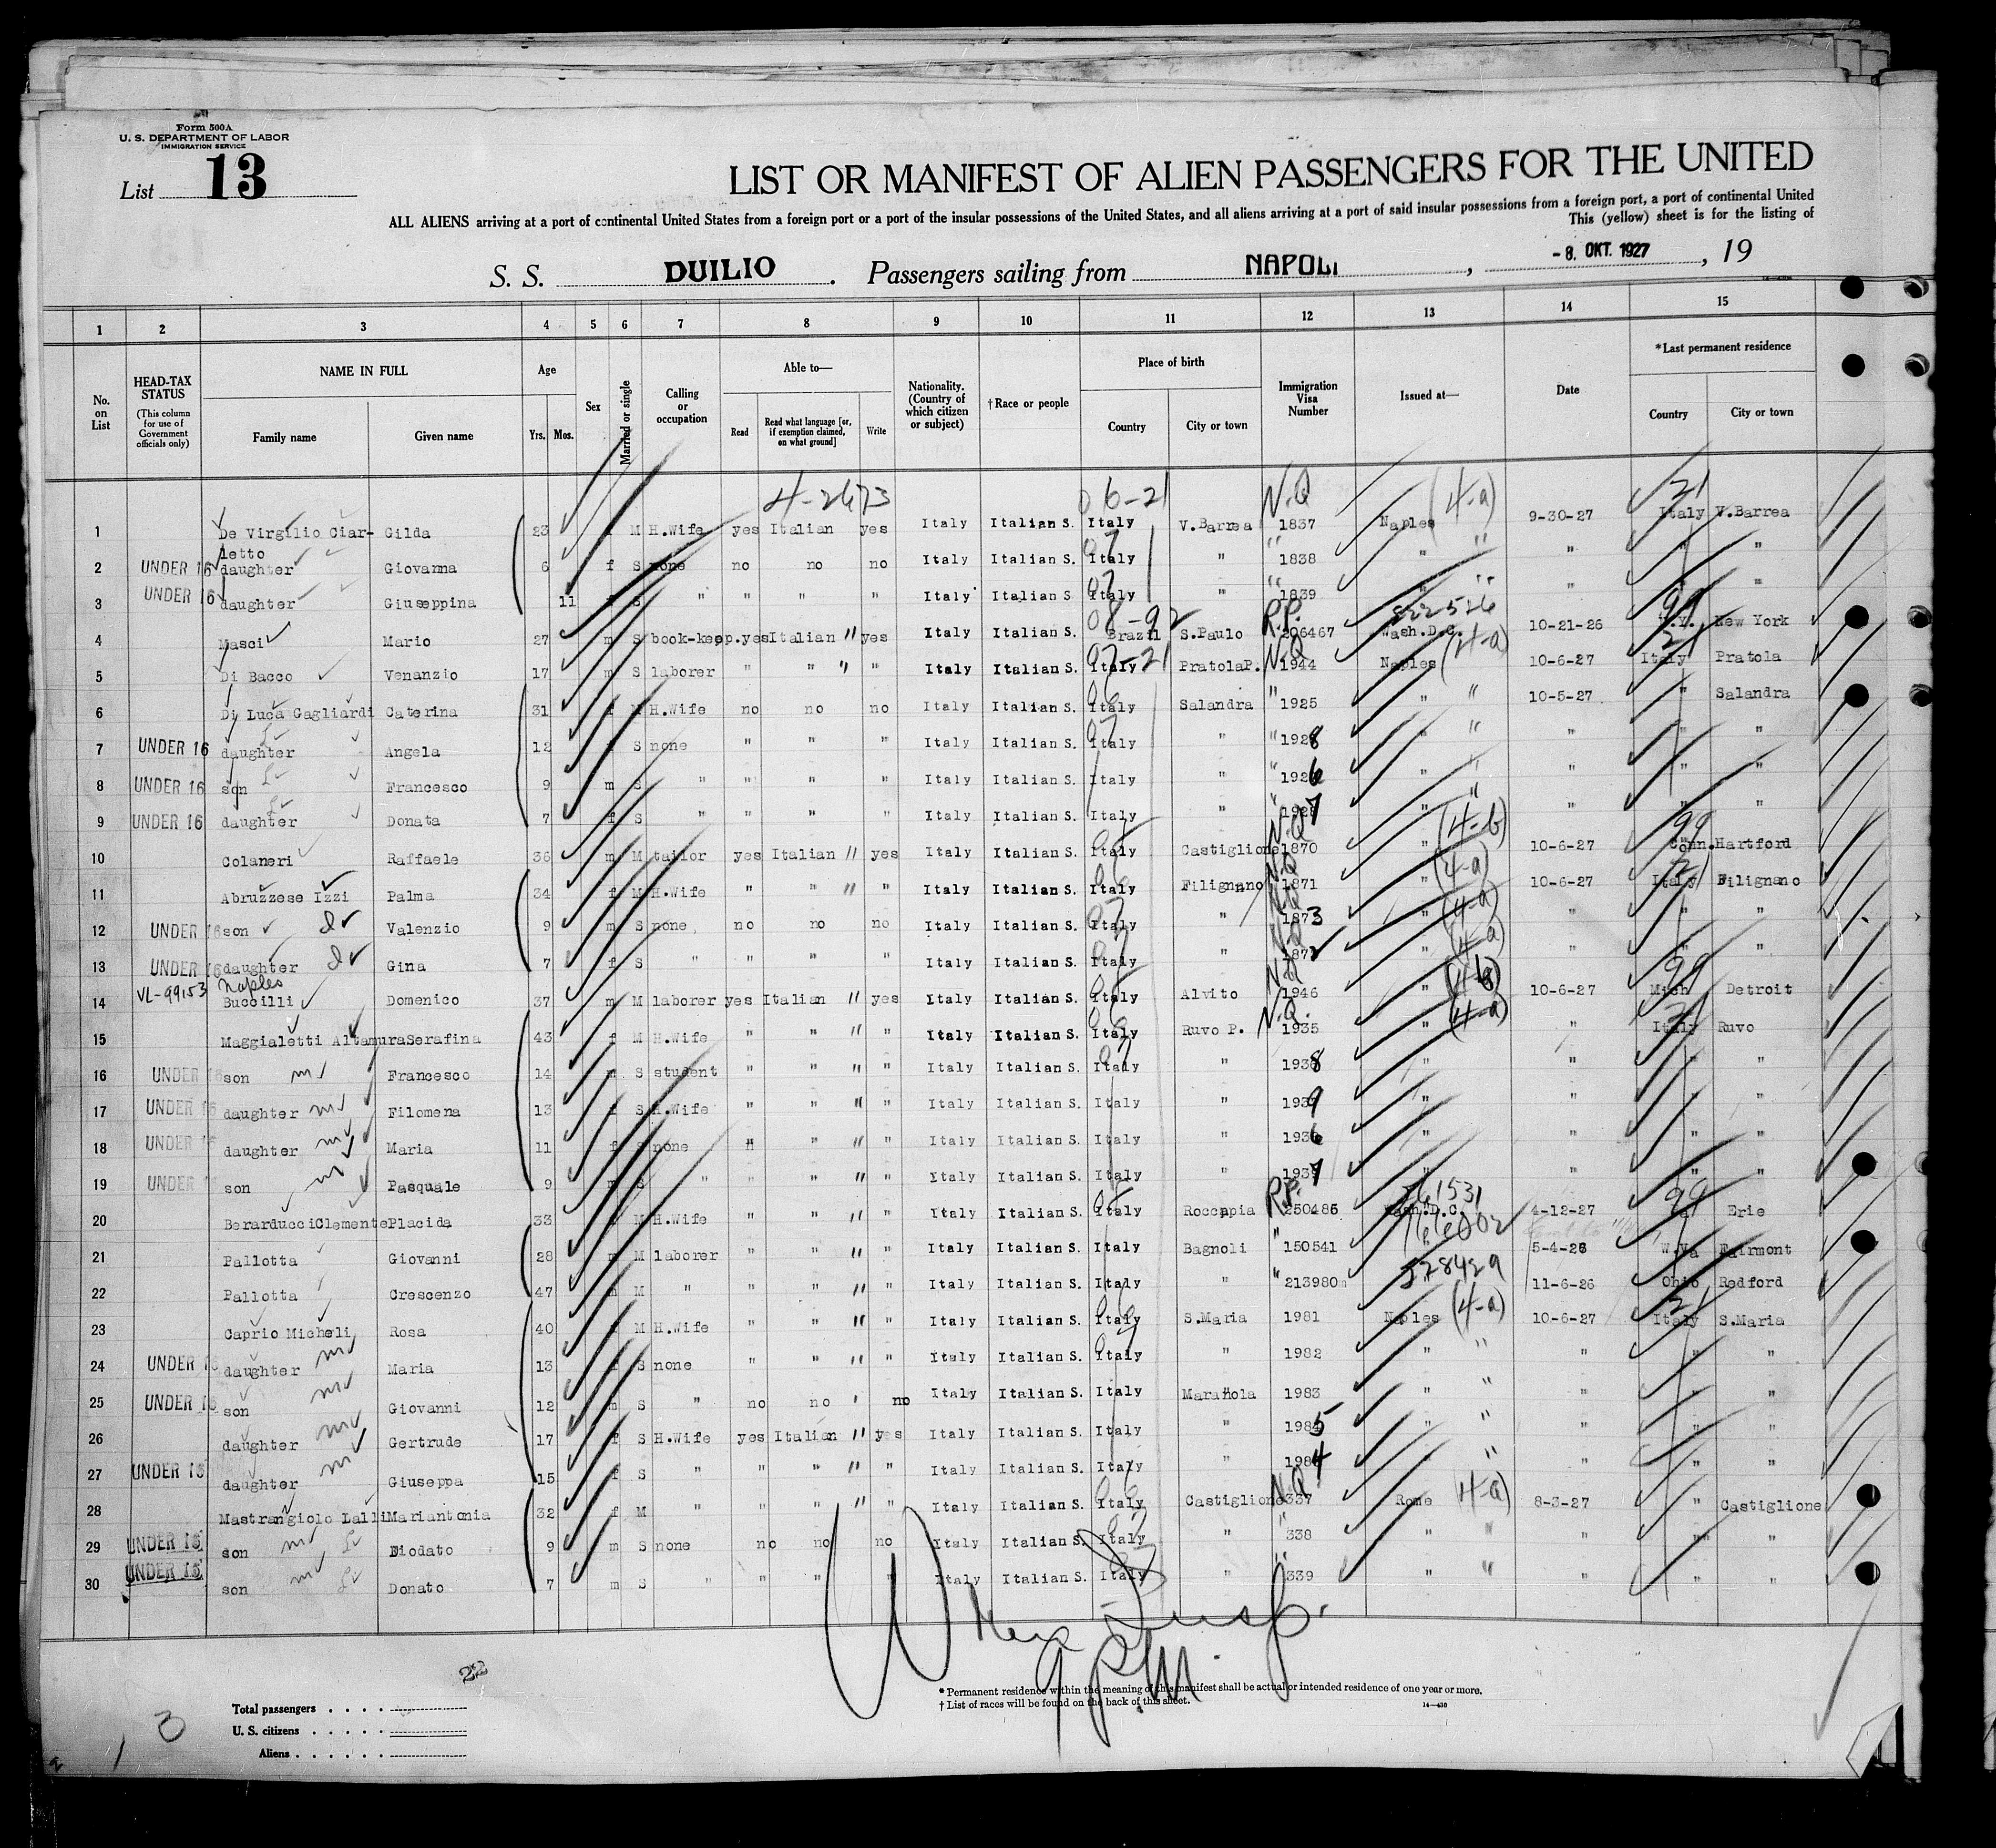 Form 500A
U. S. DEPARTMENT OF LABOR
IMMIGRATION SERVICE
List 13
LIST OR MANIFEST OF ALIEN PASSENGERS FOR THE UNITED
ALL ALIENS arriving at a port of continental United States from a foreign port or a port of the insular possessions of the United States, and all aliens arriving at a port of said insular possessions from a foreign port, a port of continental United
This (yellow) sheet is for the listing of
S. S. DUILIO. Passengers sailing from NAPOLI, - 8. OKT. 1927, 19
1 2 3 4 5 6 7 8 9 10 11 12 13 14 15
No. on List
HEAD-TAX STATUS (This column for use of Government officials only)
NAME IN FULL Family name Given name
Age Yrs. Mos.
Sex
Married or single
Calling or occupation
Able to— Read Read what language [or, if exemption claimed, on what ground] Write
Nationality. (Country of which citizen or subject)
†Race or people
Place of birth Country City or town
Immigration Visa Number
Issued at—
Date
*Last permanent residence Country City or town
4-2673 06-21 N.Q (4-a) 21
1 De Virgilio Ciar- Gilda 23 f M H.Wife yes Italian yes Italy Italian S. Italy V.Barrea 1837 Naples 9-30-27 Italy V.Barrea
letto
2 UNDER 16 daughter Giovanna 6 f S none no no no Italy Italian S. Italy " 1838 " " " "
3 UNDER 16 daughter Giuseppina 11 f S " " " " Italy Italian S. Italy " 1839 " " " "
08-92 R.P. 822526 99
4 Masci Mario 27 m S book-keep.yes Italian " yes Italy Italian S. Brazil S.Paulo 206467 Wash.D.C. 10-21-26 N.Y. New York
07-21 N.Q (4-a) 21
5 Di Bacco Venanzio 17 m S laborer " " " Italy Italian S. Italy PratolaP. 1944 Naples 10-6-27 Italy Pratola
6 Di Luca Gagliardi Caterina 31 f M H.Wife no no no Italy Italian S. Italy Salandra 1925 " 10-5-27 " Salandra
7 UNDER 16 daughter Angela 12 f S none " " " Italy Italian S. Italy " 1928 " " " "
8 UNDER 16 son Francesco 9 m S " " " " Italy Italian S. Italy " 1926 " " " "
9 UNDER 16 daughter Donata 7 f S " " " " Italy Italian S. Italy " 1927 " " " "
N.Q (4-b) 99
10 Colaneri Raffaele 36 m M tailor yes Italian " yes Italy Italian S. Italy Castiglione 1870 " 10-6-27 Conn. Hartford
(4-a)
11 Abruzzese Izzi Palma 34 f M H.Wife " " " Italy Italian S. Italy Filignano 1871 " 10-6-27 Italy Filignano
12 UNDER 16 son Valenzio 9 m S none no no no Italy Italian S. Italy " 1873 " (4-a) " " "
13 UNDER 16 daughter Gina 7 f S " " " " Italy Italian S. Italy " 1872 " (4-a) " " "
VL-99153 Naples N.Q (4-b) 99
14 Buccilli Domenico 37 m M laborer yes Italian " yes Italy Italian S. Italy Alvito 1946 " 10-6-27 Mich Detroit
N.Q. (4-a) 21
15 Maggialetti Altamura Serafina 43 f M H.Wife " " " Italy Italian S. Italy Ruvo P. 1935 " " Italy Ruvo
16 UNDER 16 son Francesco 14 m S student " " " Italy Italian S. Italy " 1938 " " " "
17 UNDER 16 daughter Filomena 13 f S H.Wife " " " Italy Italian S. Italy " 1939 " " " "
18 UNDER 16 daughter Maria 11 f S none " " " Italy Italian S. Italy " 1936 " " " "
19 UNDER 16 son Pasquale 9 m S " " " " Italy Italian S. Italy " 1937 " " " "
R.P. 99
20 Berarducci Clemente Placida 33 f M H.Wife " " " Italy Italian S. Italy Roccapia 250485 Wash.D.C. 4-12-27 Erie
21 Pallotta Giovanni 28 m M laborer " " " Italy Italian S. Italy Bagnoli 150541 " 5-4-26 W.Va Fairmont
22 Pallotta Crescenzo 47 m M " " " " Italy Italian S. Italy " 213980 11-6-26 Ohio Redford
(4-a) 21
23 Caprio Micheli Rosa 40 f M H.Wife " " " Italy Italian S. Italy S.Maria 1981 Naples 10-6-27 Italy S.Maria
24 UNDER 16 daughter Maria 13 f S none " " " Italy Italian S. Italy " 1982 " " " "
25 UNDER 16 son Giovanni 12 m S " no no no Italy Italian S. Italy Maranola 1983 " " " "
26 daughter Gertrude 17 f S H.Wife yes Italian " yes Italy Italian S. Italy " 1985 " " " "
27 UNDER 16 daughter Giuseppa 15 f S " " " " Italy Italian S. Italy " 1984 " " " "
N.Q (4-a)
28 Mastrangiolo Lalli Mariantonia 32 f M " " " " Italy Italian S. Italy Castiglione 337 Rome 8-3-27 " Castiglione
29 UNDER 16 son Diodato 9 m S none no no no Italy Italian S. Italy " 338 " " " "
30 UNDER 16 son Donato 7 m S " " " " Italy Italian S. Italy " 339 " " " "
22
Total passengers
U. S. citizens
Aliens
3
* Permanent residence within the meaning of this manifest shall be actual or intended residence of one year or more.
† List of races will be found on the back of this sheet.
14—430